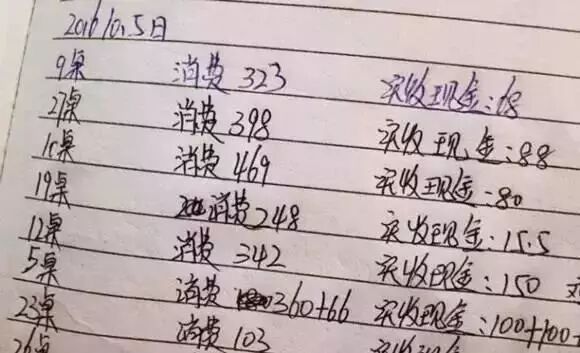 2016 10.5日
9桌 消费 323 实收现金:68
27桌 消费 398 实收现金:88
桌 消费 469 实收现金:80
19桌 消费 248 实收现金:15.5
12桌 消费 342 实收现金:150
5桌 消费 360+66 实收现金:100+100+
23桌 消费 103
26桌